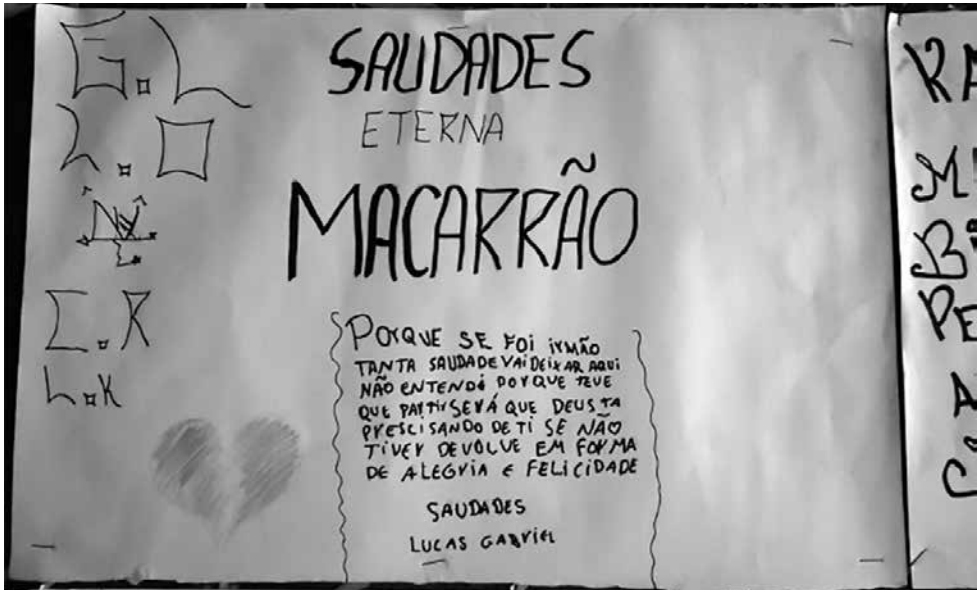 G.L
SAUDADES
ETERNA
MACARRÃO
C.R
L.K
PORQUE SE FOI IRMÃO
TANTA SAUDADE VAI DEIXAR AQUI
NÃO ENTENDÓ PORQUE TEVE
QUE PARTIR SERÁ QUE DEUS TA
PRESCISANDO DE TI SE NÃO
TIVER DEVOLVE EM FORMA
DE ALEGRIA E FELICIDADE
SAUDADES
LUCAS GABRIEL
KA
M
PE